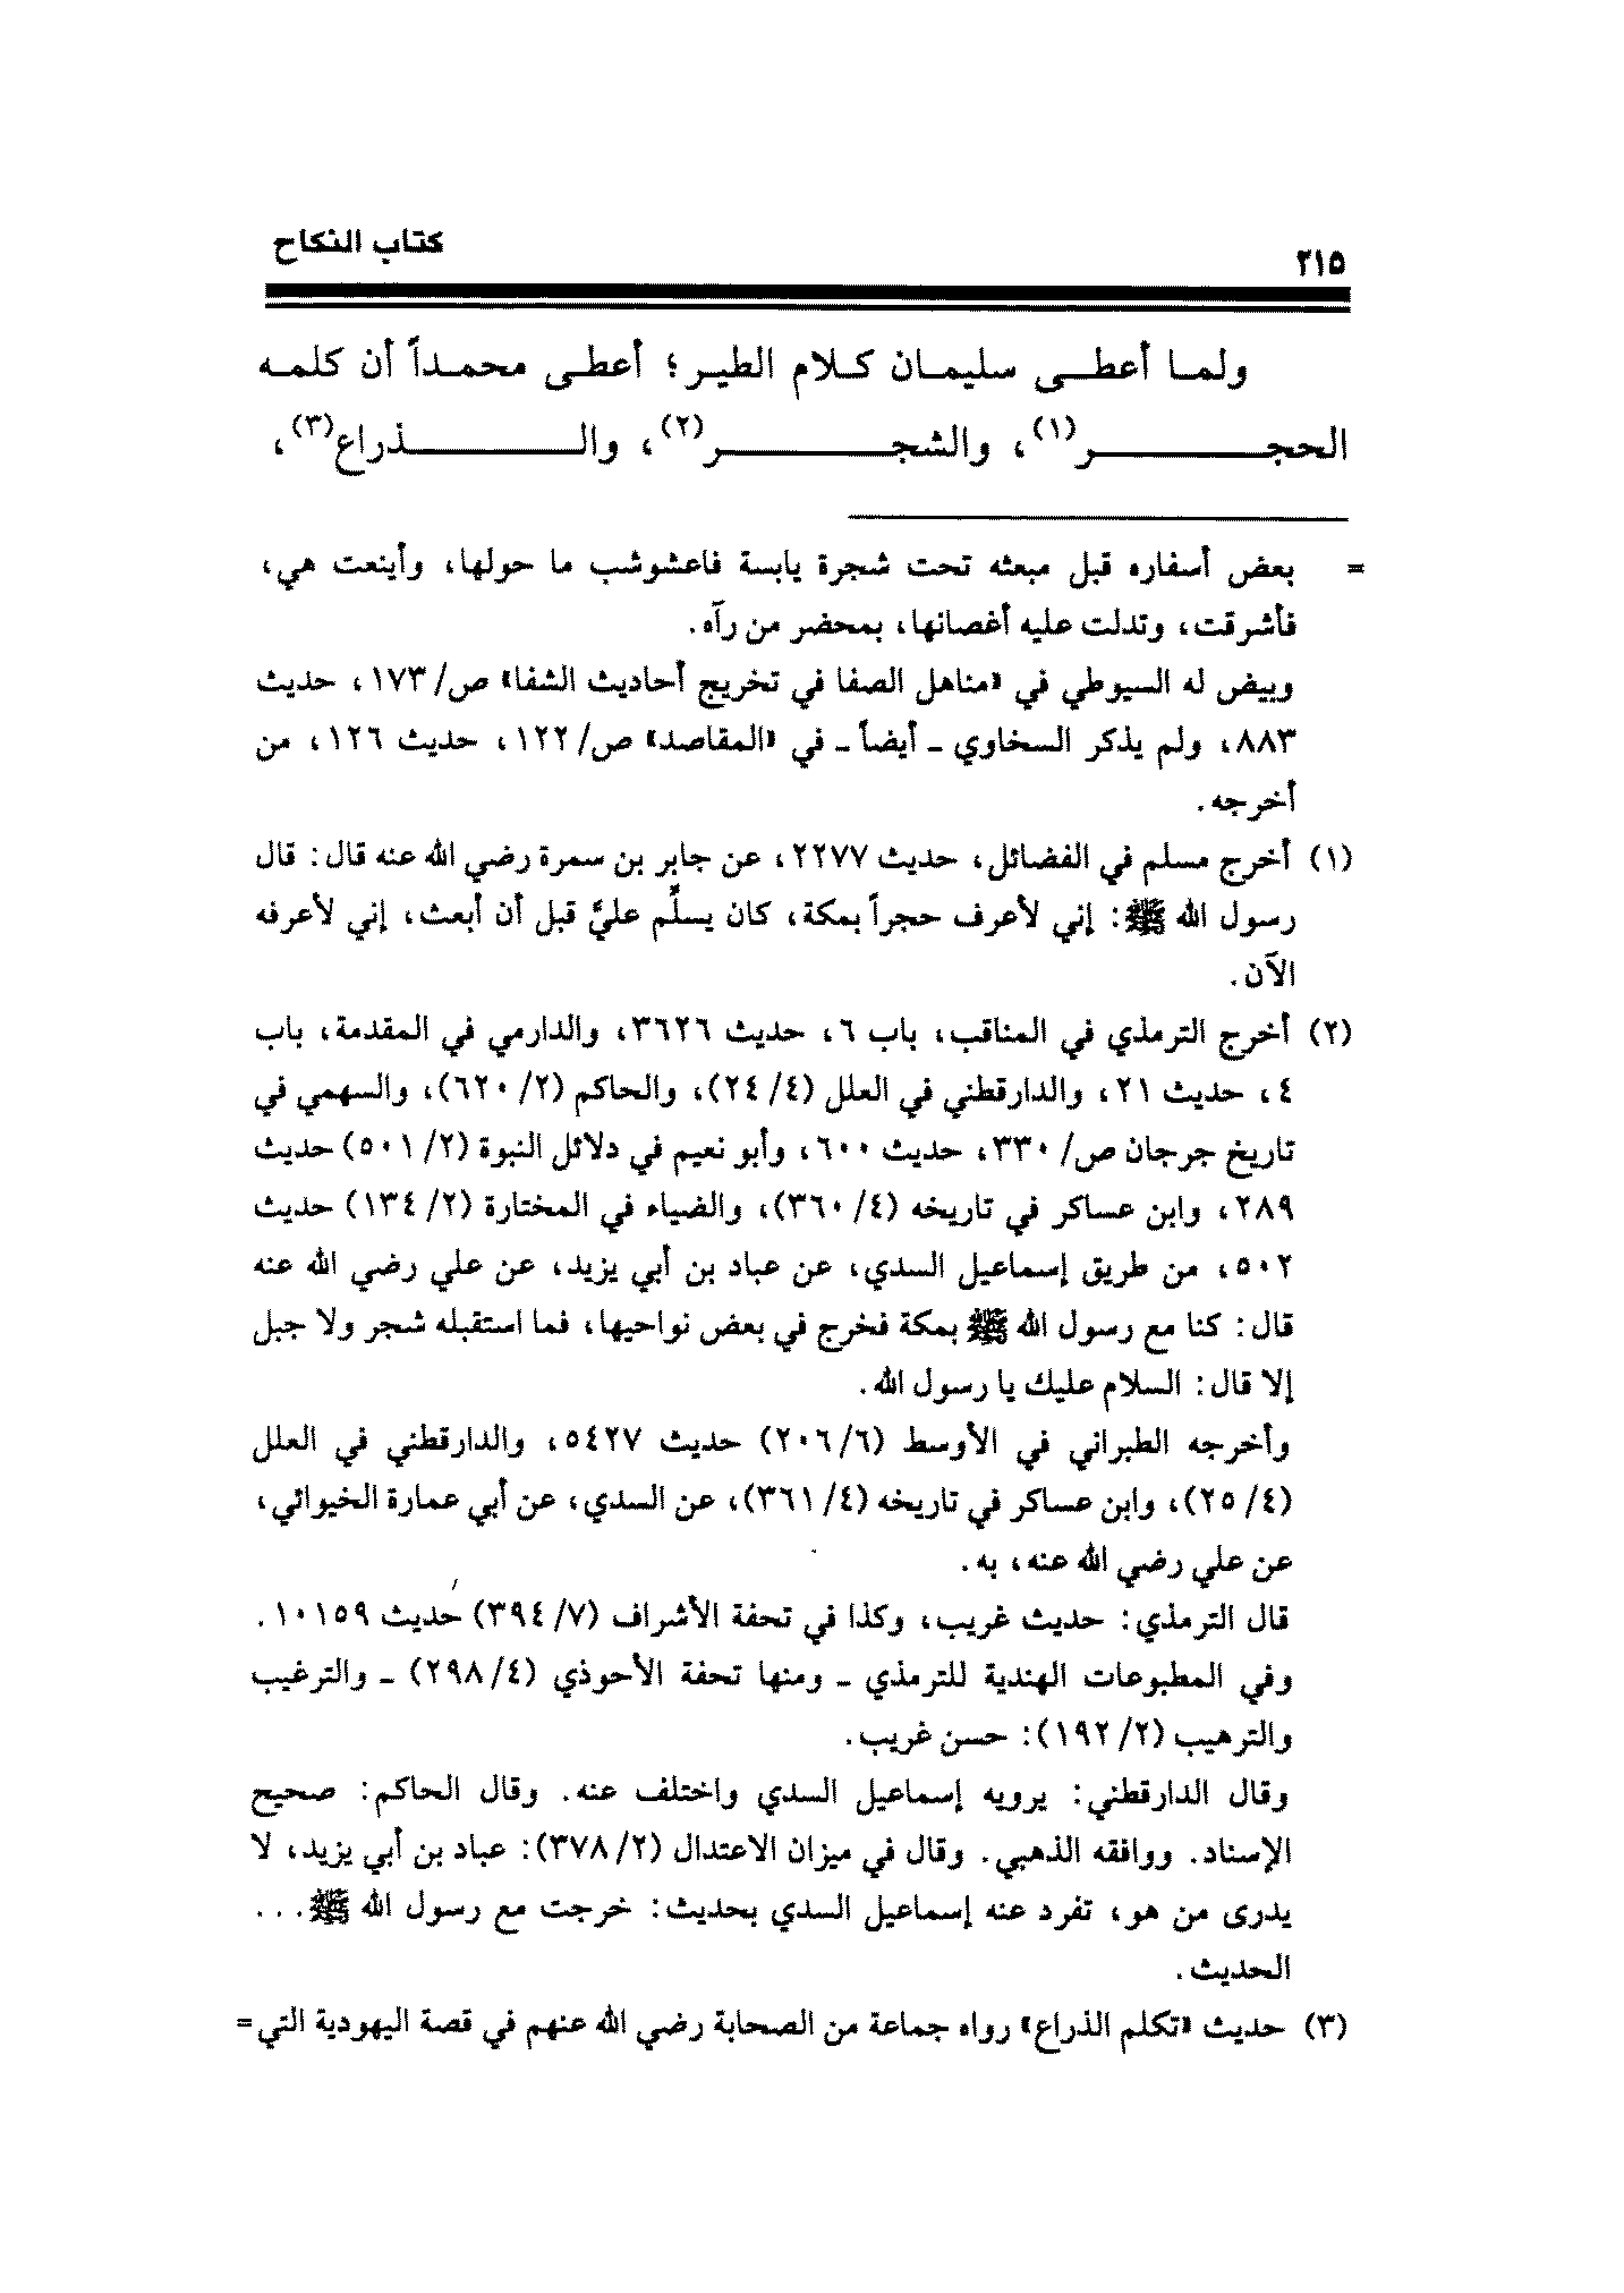 ٢١٥
كتاب النكاح
ولما أعطى سليمان كلام الطير؛ أعطى محمداً أن كلمه
الحجر(١)، والشجر(٢)، والذراع(٣)،
= بعض أسفاره قبل مبعثه تحت شجرة يابسة فاعشوشب ما حولها، وأينعت هي،
فأشرقت، وتدلت عليه أغصانها، بمحضر من رآه.
وبيض له السيوطي في «مناهل الصفا في تخريج أحاديث الشفا» ص/١٧٣، حديث
٨٨٣، ولم يذكر السخاوي ـ أيضاً ـ في «المقاصد» ص/١٢٢، حديث ١٢٦، من
أخرجه.
(١) أخرج مسلم في الفضائل، حديث ٢٢٧٧، عن جابر بن سمرة رضي الله عنه قال: قال
رسول الله ﷺ: إني لأعرف حجراً بمكة، كان يسلِّم عليَّ قبل أن أبعث، إني لأعرفه
الآن.
(٢) أخرج الترمذي في المناقب، باب ٦، حديث ٣٦٢٦، والدارمي في المقدمة، باب
٤، حديث ٢١، والدارقطني في العلل (٤/ ٢٤)، والحاكم (٢/ ٦٢٠)، والسهمي في
تاريخ جرجان ص/ ٣٣٠، حديث ٦٠٠، وأبو نعيم في دلائل النبوة (٢/ ٥٠١) حديث
٢٨٩، وابن عساكر في تاريخه (٤/ ٣٦٠)، والضياء في المختارة (٢/ ١٣٤) حديث
٥٠٢، من طريق إسماعيل السدي، عن عباد بن أبي يزيد، عن علي رضي الله عنه
قال: كنا مع رسول الله ﷺ بمكة فخرج في بعض نواحيها، فما استقبله شجر ولا جبل
إلا قال: السلام عليك يا رسول الله.
وأخرجه الطبراني في الأوسط (٦/ ٢٠٦) حديث ٥٤٢٧، والدارقطني في العلل
(٤/ ٢٥)، وابن عساكر في تاريخه (٤/ ٣٦١)، عن السدي، عن أبي عمارة الخيوائي،
عن علي رضي الله عنه، به.
قال الترمذي: حديث غريب، وكذا في تحفة الأشراف (٧/ ٣٩٤) حديث ١٠١٥٩.
وفي المطبوعات الهندية للترمذي ـ ومنها تحفة الأحوذي (٤/ ٢٩٨) ـ والترغيب
والترهيب (٢/ ١٩٢): حسن غريب.
وقال الدارقطني: يرويه إسماعيل السدي واختلف عنه. وقال الحاكم: صحيح
الإسناد. ووافقه الذهبي. وقال في ميزان الاعتدال (٢/ ٣٧٨): عباد بن أبي يزيد، لا
يدرى من هو، تفرد عنه إسماعيل السدي بحديث: خرجت مع رسول الله ﷺ...
الحديث.
(٣) حديث «تكلم الذراع» رواه جماعة من الصحابة رضي الله عنهم في قصة اليهودية التي =